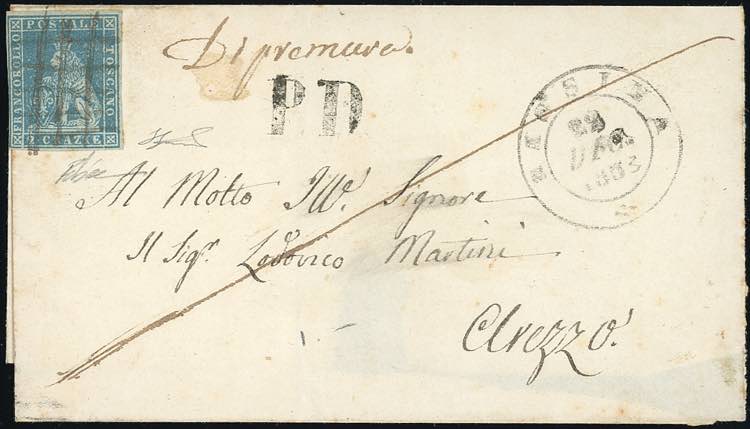 FRANCOBOLLO
POSTALE
TOSCANO
2 CRAZIE
Di premura.
P D
22
DEC.
1853
Al Molto Ill.e Signore
Il Sig.r Lodovico Martini
Arezzo